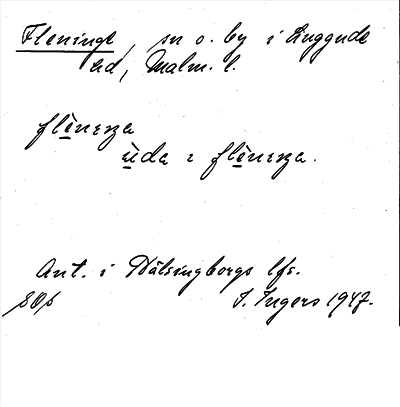 Fleninge, sn o. by i Luggude
hd, Malm. l.
flè̱nıŋa
ù̱da i flè̱nıŋa.
Ant. i Hälsingborgs lfs.
I. Ingers 1947.